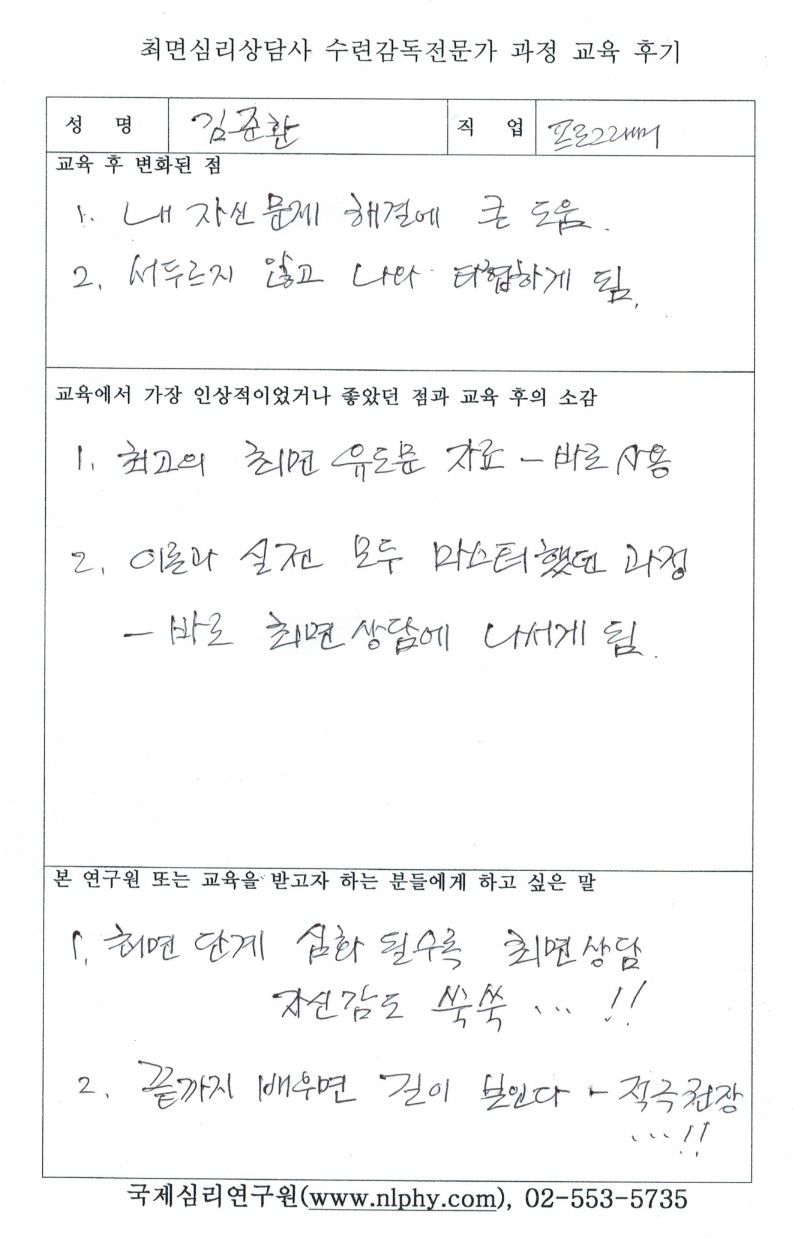 최면심리상담사 수련감독전문가 과정 교육 후기
성 명 김준환 직 업 프로그래머
교육 후 변화된 점
1. 내 자신 문제 해결에 큰 도움.
2. 서두르지 않고 나와 타협하게 됨.
교육에서 가장 인상적이었거나 좋았던 점과 교육 후의 소감
1. 최고의 최면 유도문 자료 - 바로 사용
2. 이론과 실전 모두 마스터했던 과정
- 바로 최면상담에 나서게 됨.
본 연구원 또는 교육을 받고자 하는 분들에게 하고 싶은 말
1. 최면 단계 심화 될수록 최면상담
자신감도 쑥쑥 ... !!
2. 끝까지 배우면 길이 보인다 - 적극권장
... !!
국제심리연구원(www.nlphy.com), 02-553-5735